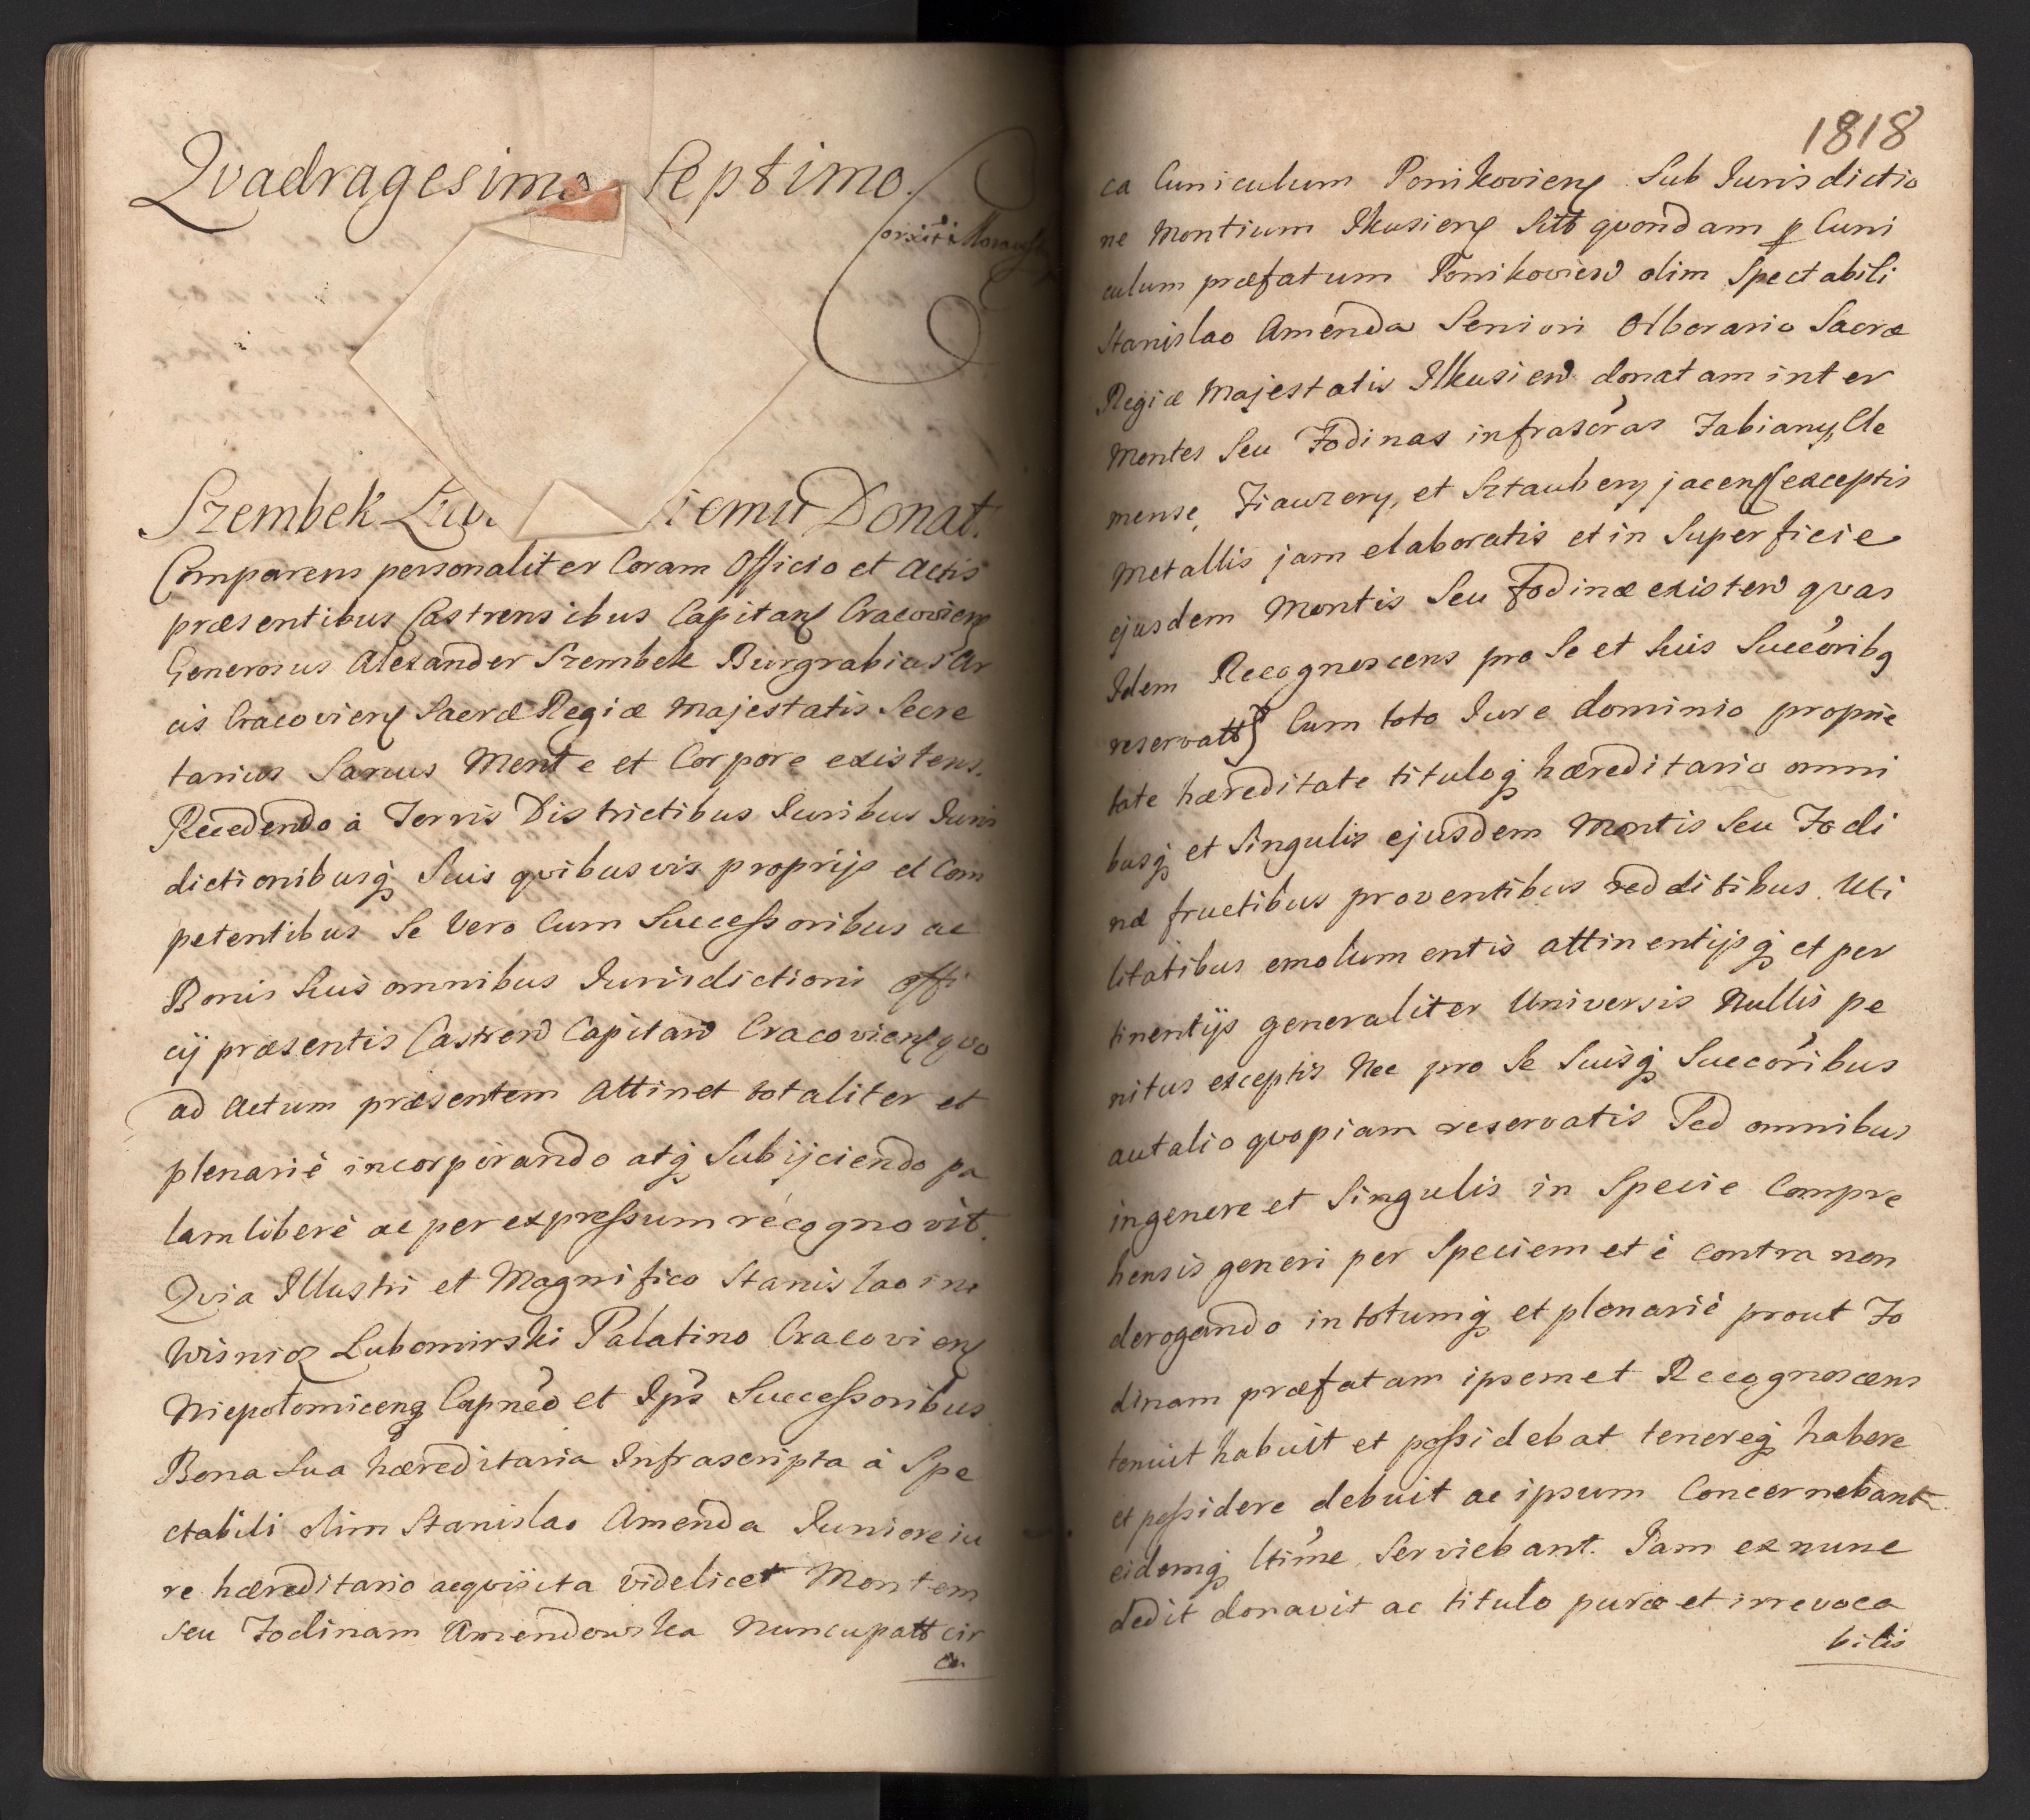 Qvadragesimo Septimo.
Szembek Lub iemu Donat.
Comparens personaliter Coram Officio et Actis
præsentibus Castrensibus Capitanꝭ Cracovienꝭ
Generosus Alexander Szembek Burgrabius Ar
cis Cracovienꝭ Sacræ Regiæ Majestatis Secre
tarius Sanus Mente et Corpore existens.
Recedendo à Terris Districtibus Iuribus Juris
dictionibusq̨ Suis qvibusvis proprijs et Com
petentibus Se Vero Cum Successoribus ac
Bonis Suis omnibus Iurisdictioni offi
cij præsentis Castren Capitan Cracovienꝭ qvo
ad Actum præsentem Attinet totaliter et
plenariè incorporando atq̨ Subijciendo pa
lam liberè ac per expressum recognovit.
Qvia Illustri et Magnifico Stanislao in
Wisnicz Lubomirski Palatino Cracovienꝭ
Niepołomicenꝭ Capneo et Ips Successoribus
Bona Sua hæreditaria Infrascripta à Spe
ctabili olim Stanislao Amenda Juniore iu
re hæreditario acqvisita videlicet Montem
seu Fodinam Amendowska Nuncupatt cir
ca
1818
ca Cuniculum Ponikovienꝭ Sub Jurisdictio
ne Montium Ilkusienꝭ Sitt qvondam ꝑ Cuni
culum præfatum Ponikovien olim Spectabili
Stanislao Amenda Seniori Olborario Sacræ
Regiæ Majestatis Ilkusien donatam inter
Montes Seu Fodinas infrascras Fabiany, Cle
mense, Fiawzery, et Sztaubery jacenꝭ exceptis
Metallis jam elaboratis et in Superficie
ejusdem Montis Seu fodinæ existen qvas
Idem Recognoscens pro Se et Suis Succoribꝗ
reservatt) Cum toto Iure dominio proprie
tate hæreditate tituloq̨ hæreditario omni
busq̨ et Singulis ejusdem Montis Seu Fodi
næ fructibus proventibus redditibus. Uti
litatibus emolumentis attinentijsq̨ et per
tinentijs generaliter Universis Nullis pe
nitus exceptis Nec pro Se Suisq̨ Succoribus
aut alio qvopiam reservatis Sed omnibus
in genere et Singulis in Specie Compre
hensis generi per Speciem et è contra non
derogando in totumq̨ et plenariè prout Fo
dinam præfatam ipsemet Recognoscens
tenuit habuit et possidebat tenereq̨ habere
et possidere debuit ac ipsum Concernebant
eidemq̨ ltime Serviebant. Jam ex nunc
dedit donavit ac titulo puræ et irrevoca
bilis